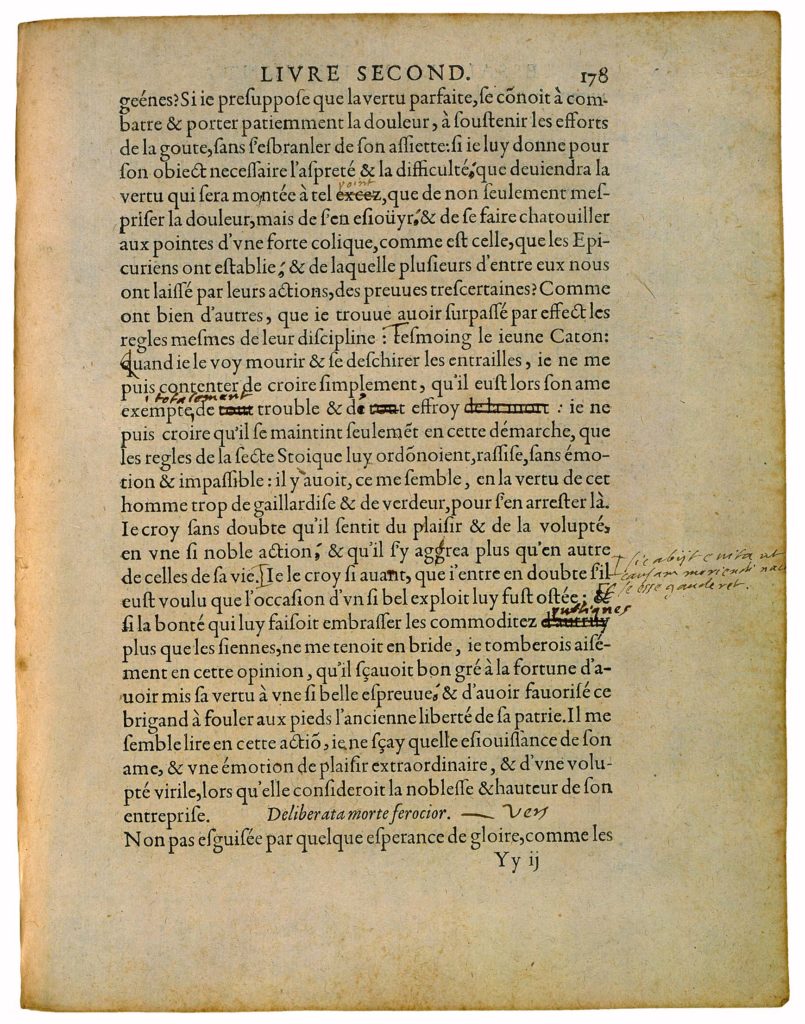 LIVRE SECOND. 178
geénes? Si ie presuppose que la vertu parfaite, se cõnoit à com-
batre & porter patiemment la douleur, à soustenir les efforts
de la goute, sans s'esbranler de son assiette: si ie luy donne pour
son obiect necessaire l'aspreté & la difficulté; que deuiendra la
point
vertu qui sera montée à tel excez, que de non seulement mes-
priser la douleur, mais de s'en esioüyr; & de se faire chatouiller
aux pointes d'vne forte colique, comme est celle, que les Epi-
curiens ont establie; & de laquelle plusieurs d'entre eux nous
ont laissé par leurs actions, des preuues trescertaines? Comme
ont bien d'autres, que ie trouue auoir surpassé par effect les
regles mesmes de leur discipline: Tesmoing le ieune Caton:
Quand ie le voy mourir & se deschirer les entrailles, ie ne me
puis contenter de croire simplement, qu'il eust lors son ame
totalement
exempte, de tout trouble & de tout effroy de la mort: ie ne
puis croire qu'il se maintint seulemẽt en cette démarche, que
les regles de la secte Stoique luy ordõnoient, rassise, sans émo-
tion & impassible: il y auoit, ce me semble, en la vertu de cet
homme trop de gaillardise & de verdeur, pour s'en arrester là.
Ie croy sans doubte qu'il sentit du plaisir & de la volupté,
en vne si noble action; & qu'il s'y aggrea plus qu'en autre
de celles de sa vie. Ie le croy si auant, que i'entre en doubte s'il
sic abijt e vita ut
causam moriendi nac
se esse gauderet.
eust voulu que l'occasion d'vn si bel exploit luy fust ostée; &
publiques
si la bonté qui luy faisoit embrasser les commoditez d'autruy
plus que les siennes, ne me tenoit en bride, ie tomberois aisé-
ment en cette opinion, qu'il sçauoit bon gré à la fortune d'a-
uoir mis sa vertu à vne si belle espreuue; & d'auoir fauorisé ce
brigand à fouler aux pieds l'ancienne liberté de sa patrie. Il me
semble lire en cette actiõ, ie ne sçay quelle esiouissance de son
ame, & vne émotion de plaisir extraordinaire, & d'vne volu-
pté virile, lors qu'elle consideroit la noblesse & hauteur de son
entreprise. Deliberata morte ferocior. — Vers
Non pas esguisée par quelque esperance de gloire, comme les
Yy ij